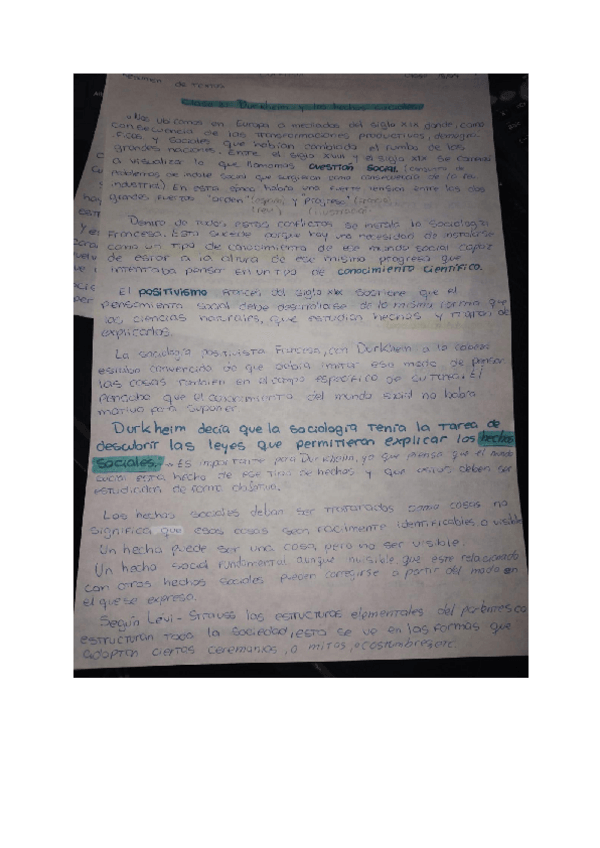 de textos
Clase 2: Durkheim y los hechos sociales
Nos ubicamos en Europa a mediados del siglo XIX donde, como
consecuencia de las transformaciones productivas, demográ-
ficas y sociales que habían cambiado el rumbo de las
grandes naciones. Entre el siglo XVIII y el siglo XIX se comenzó
a visualizar lo que llamamos cuestión social (conjunto de
problemas de índole social que surgieron como consecuencia de la rev.
industrial) En esta época había una fuerte tensión entre las dos
grandes fuerzas "orden" y "progreso"
Dentro de todos estos conflictos se instala la Sociología
Francesa. Esto sucede porque hay una necesidad de instalarse
como un tipo de conocimiento de ese mundo social capaz
de estar a la altura de ese mismo progreso que
intentaba pensar en un tipo de conocimiento científico.
El positivismo francés del siglo XIX sostiene que el
pensamiento social debe desarrollarse de la misma forma que
las ciencias naturales, que estudian hechos y tratan de
explicarlos.
La sociología positivista Francesa, con Durkheim a la cabeza
estaba convencida de que debía imitar ese modo de pensar
las cosas también en el campo específico de su tarea. Él
pensaba que el conocimiento del mundo social no había
motivo para suponer
Durkheim decía que la sociología tenía la tarea de
descubrir las leyes que permitieran explicar los hechos
sociales. → Es importante para Durkheim, ya que piensa que el mundo
social está hecho de ese tipo de hechos y que estos deben ser
estudiados de forma objetiva.
Los hechos sociales deban ser tratados como cosas no
significa que esas cosas sean facilmente identificables o visibles
Un hecho puede ser una cosa, pero no ser visible.
Un hecho social fundamental aunque invisible que este relacionado
con otros hechos sociales pueden corregirse a partir del modo en
el que se expresa.
Según Levi-Strauss las estructuras elementales del parentesco
estructuran toda la sociedad, esto se ve en las formas que
adoptan ciertas ceremonias, o mitos, o costumbres, etc.